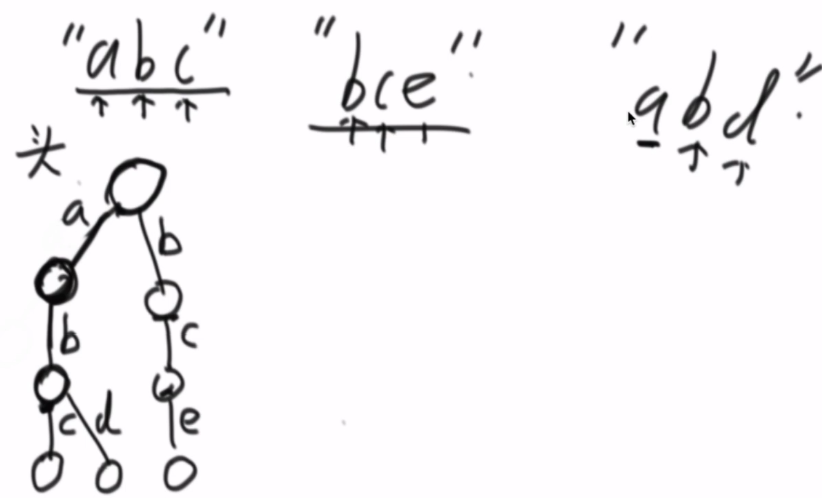 "abc" "bce" "abd"
头
a b
b c
c d e